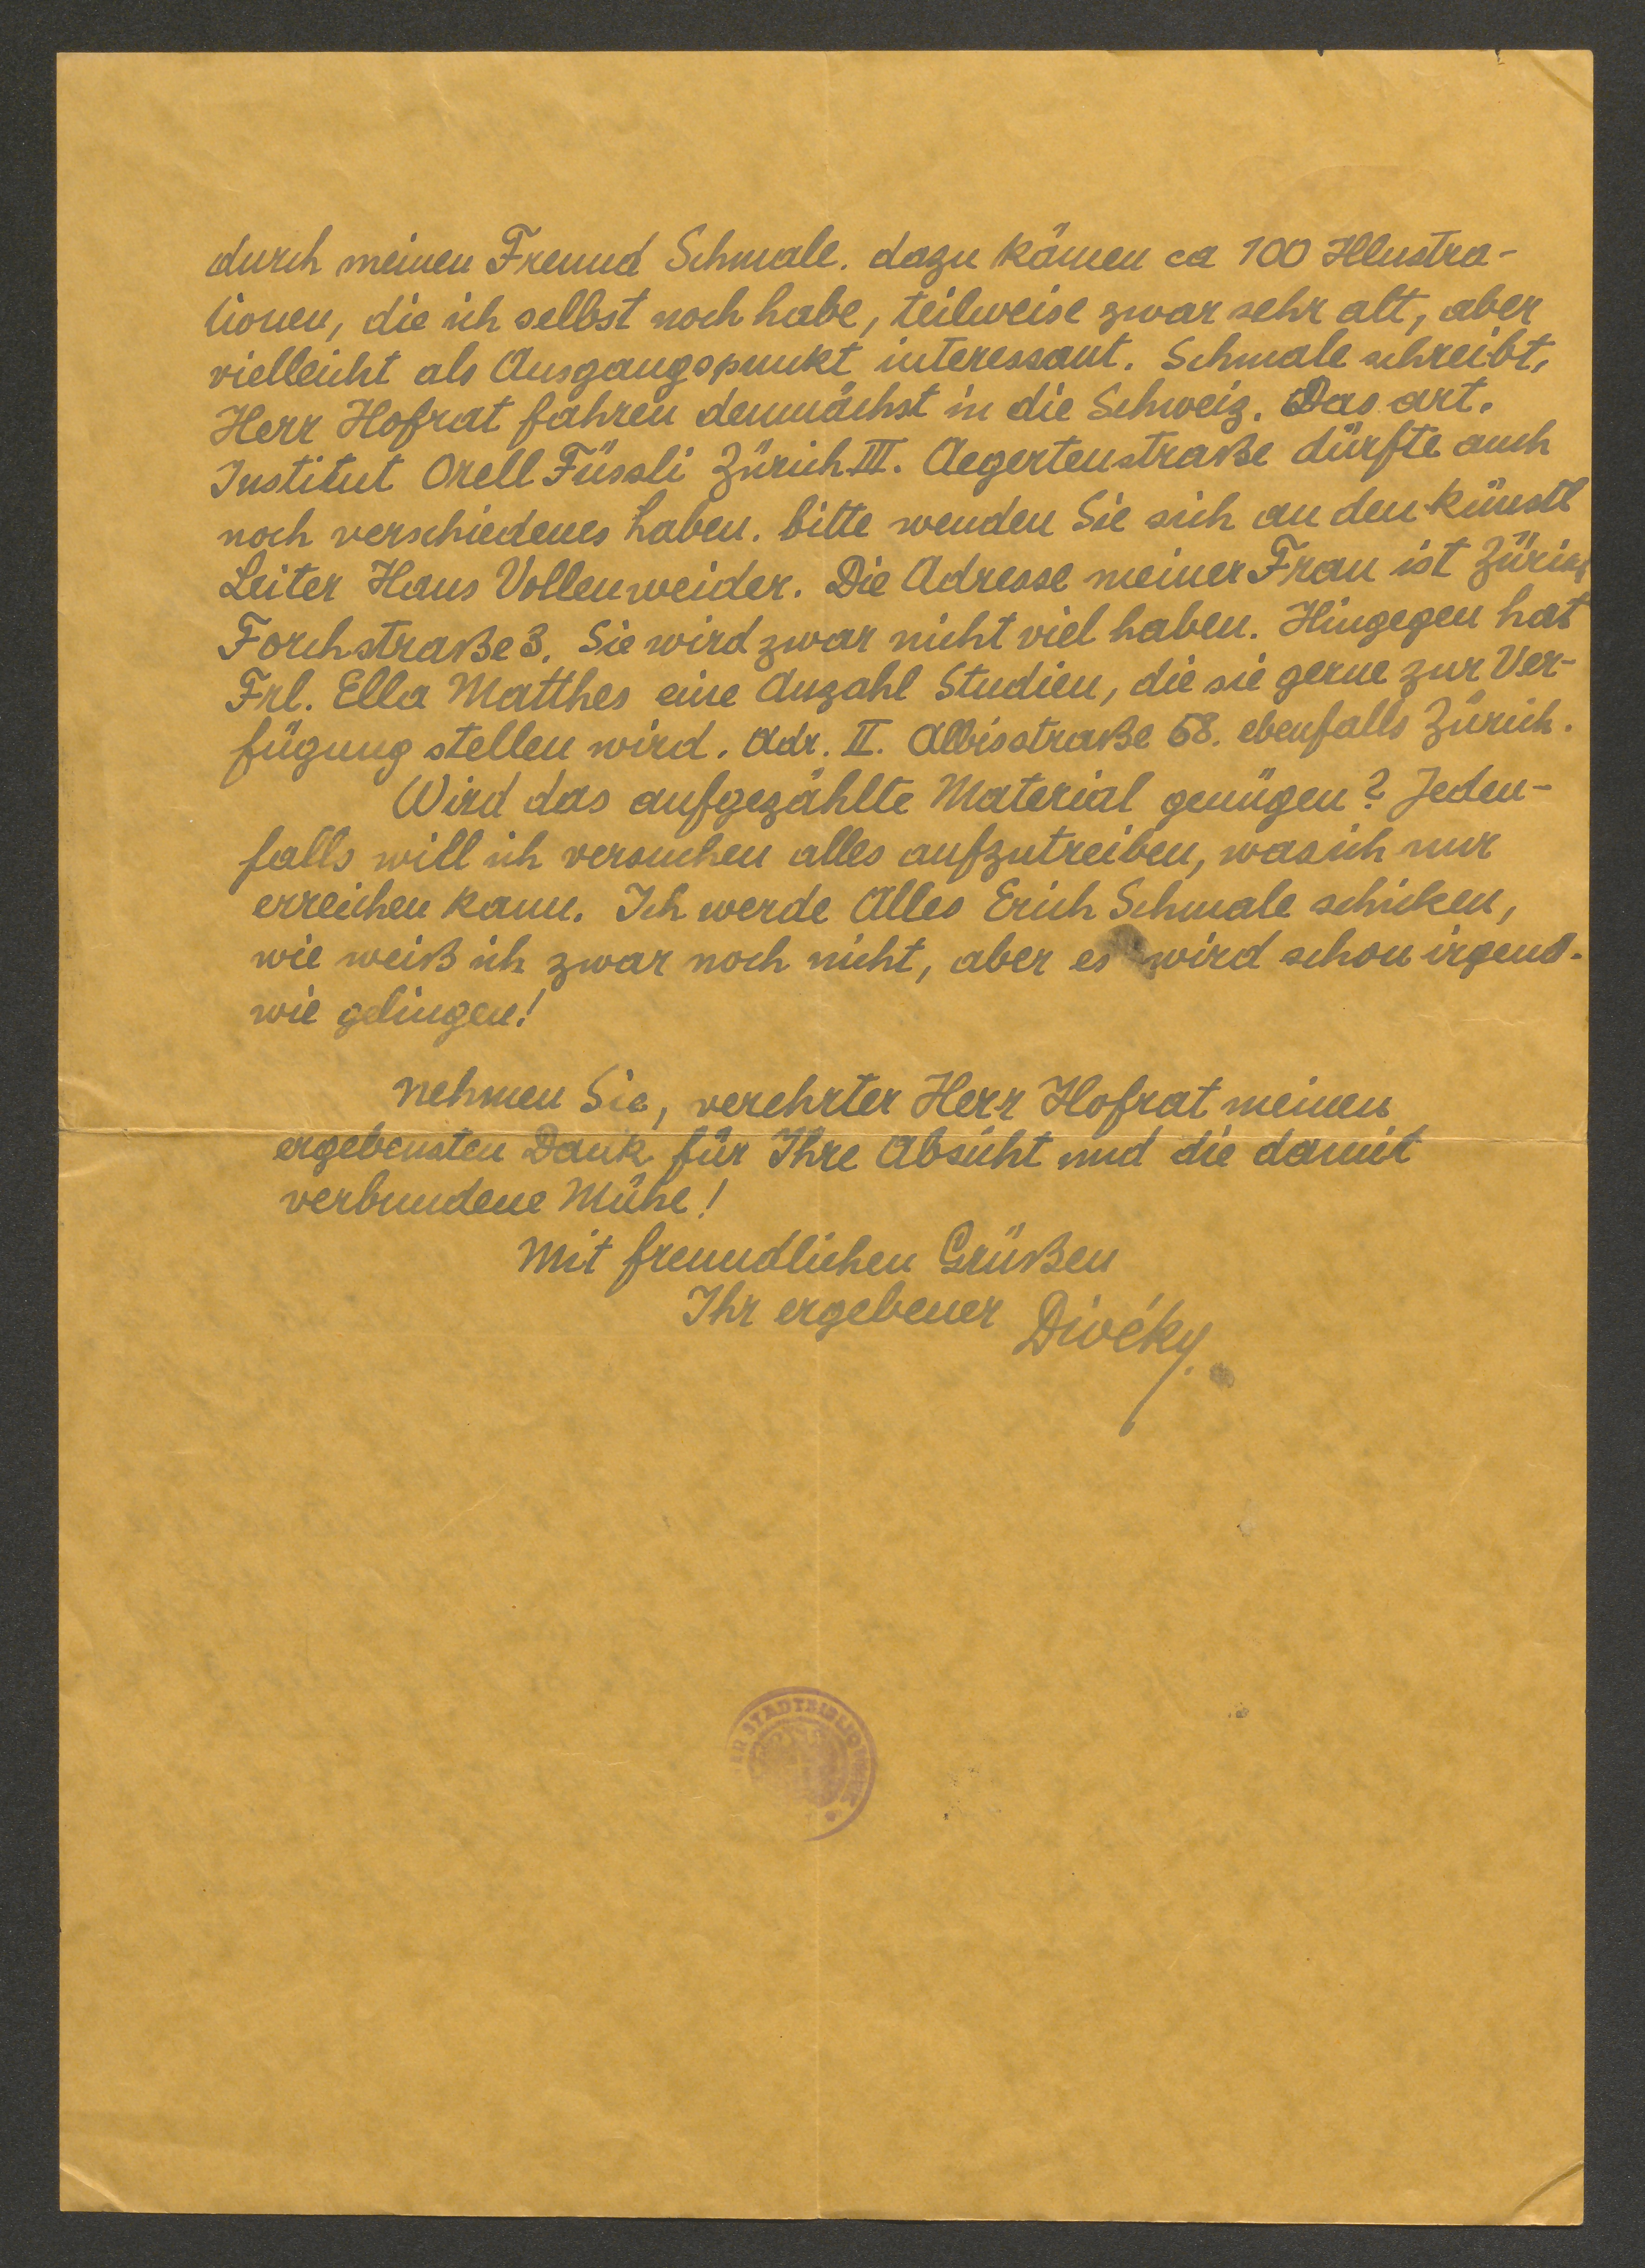 durch meinen Freund Schmale. dazu kämen ca 100 Illustra-
tionen, die ich selbst noch habe, teilweise zwar sehr alt, aber
vielleicht als Ausgangspunkt interessant. Schmale schreibt,
Herr Hofrat fahren demnächst in die Schweiz. Das art.
Institut Orell Füssli Zürich III. Aegertenstraße dürfte auch
noch verschiedenes haben. bitte wenden Sie sich an den künstl
Leiter Hans Vollenweider. Die Adresse meiner Frau ist Zürich
Forchstraße 3. Sie wird zwar nicht viel haben. Hingegen hat
Frl. Ella Matthes eine Anzahl Studien, die sie gerne zur Ver-
fügung stellen wird. Adr. II. Albisstraße 68. ebenfalls Zürich.
Wird das aufgezählte Material genügen? Jeden-
falls will ich versuchen alles aufzutreiben, was ich nur
erreichen kann. Ich werde Alles Erich Schmale schicken,
wie weiß ich zwar noch nicht, aber es wird schon irgend-
wie gelingen!
Nehmen Sie, verehrter Herr Hofrat meinen
ergebensten Dank für Ihre Absicht und die damit
verbundene Mühe!
Mit freundlichen Grüßen
Ihr ergebener Divéky.
STADTBIBLIOTHEK